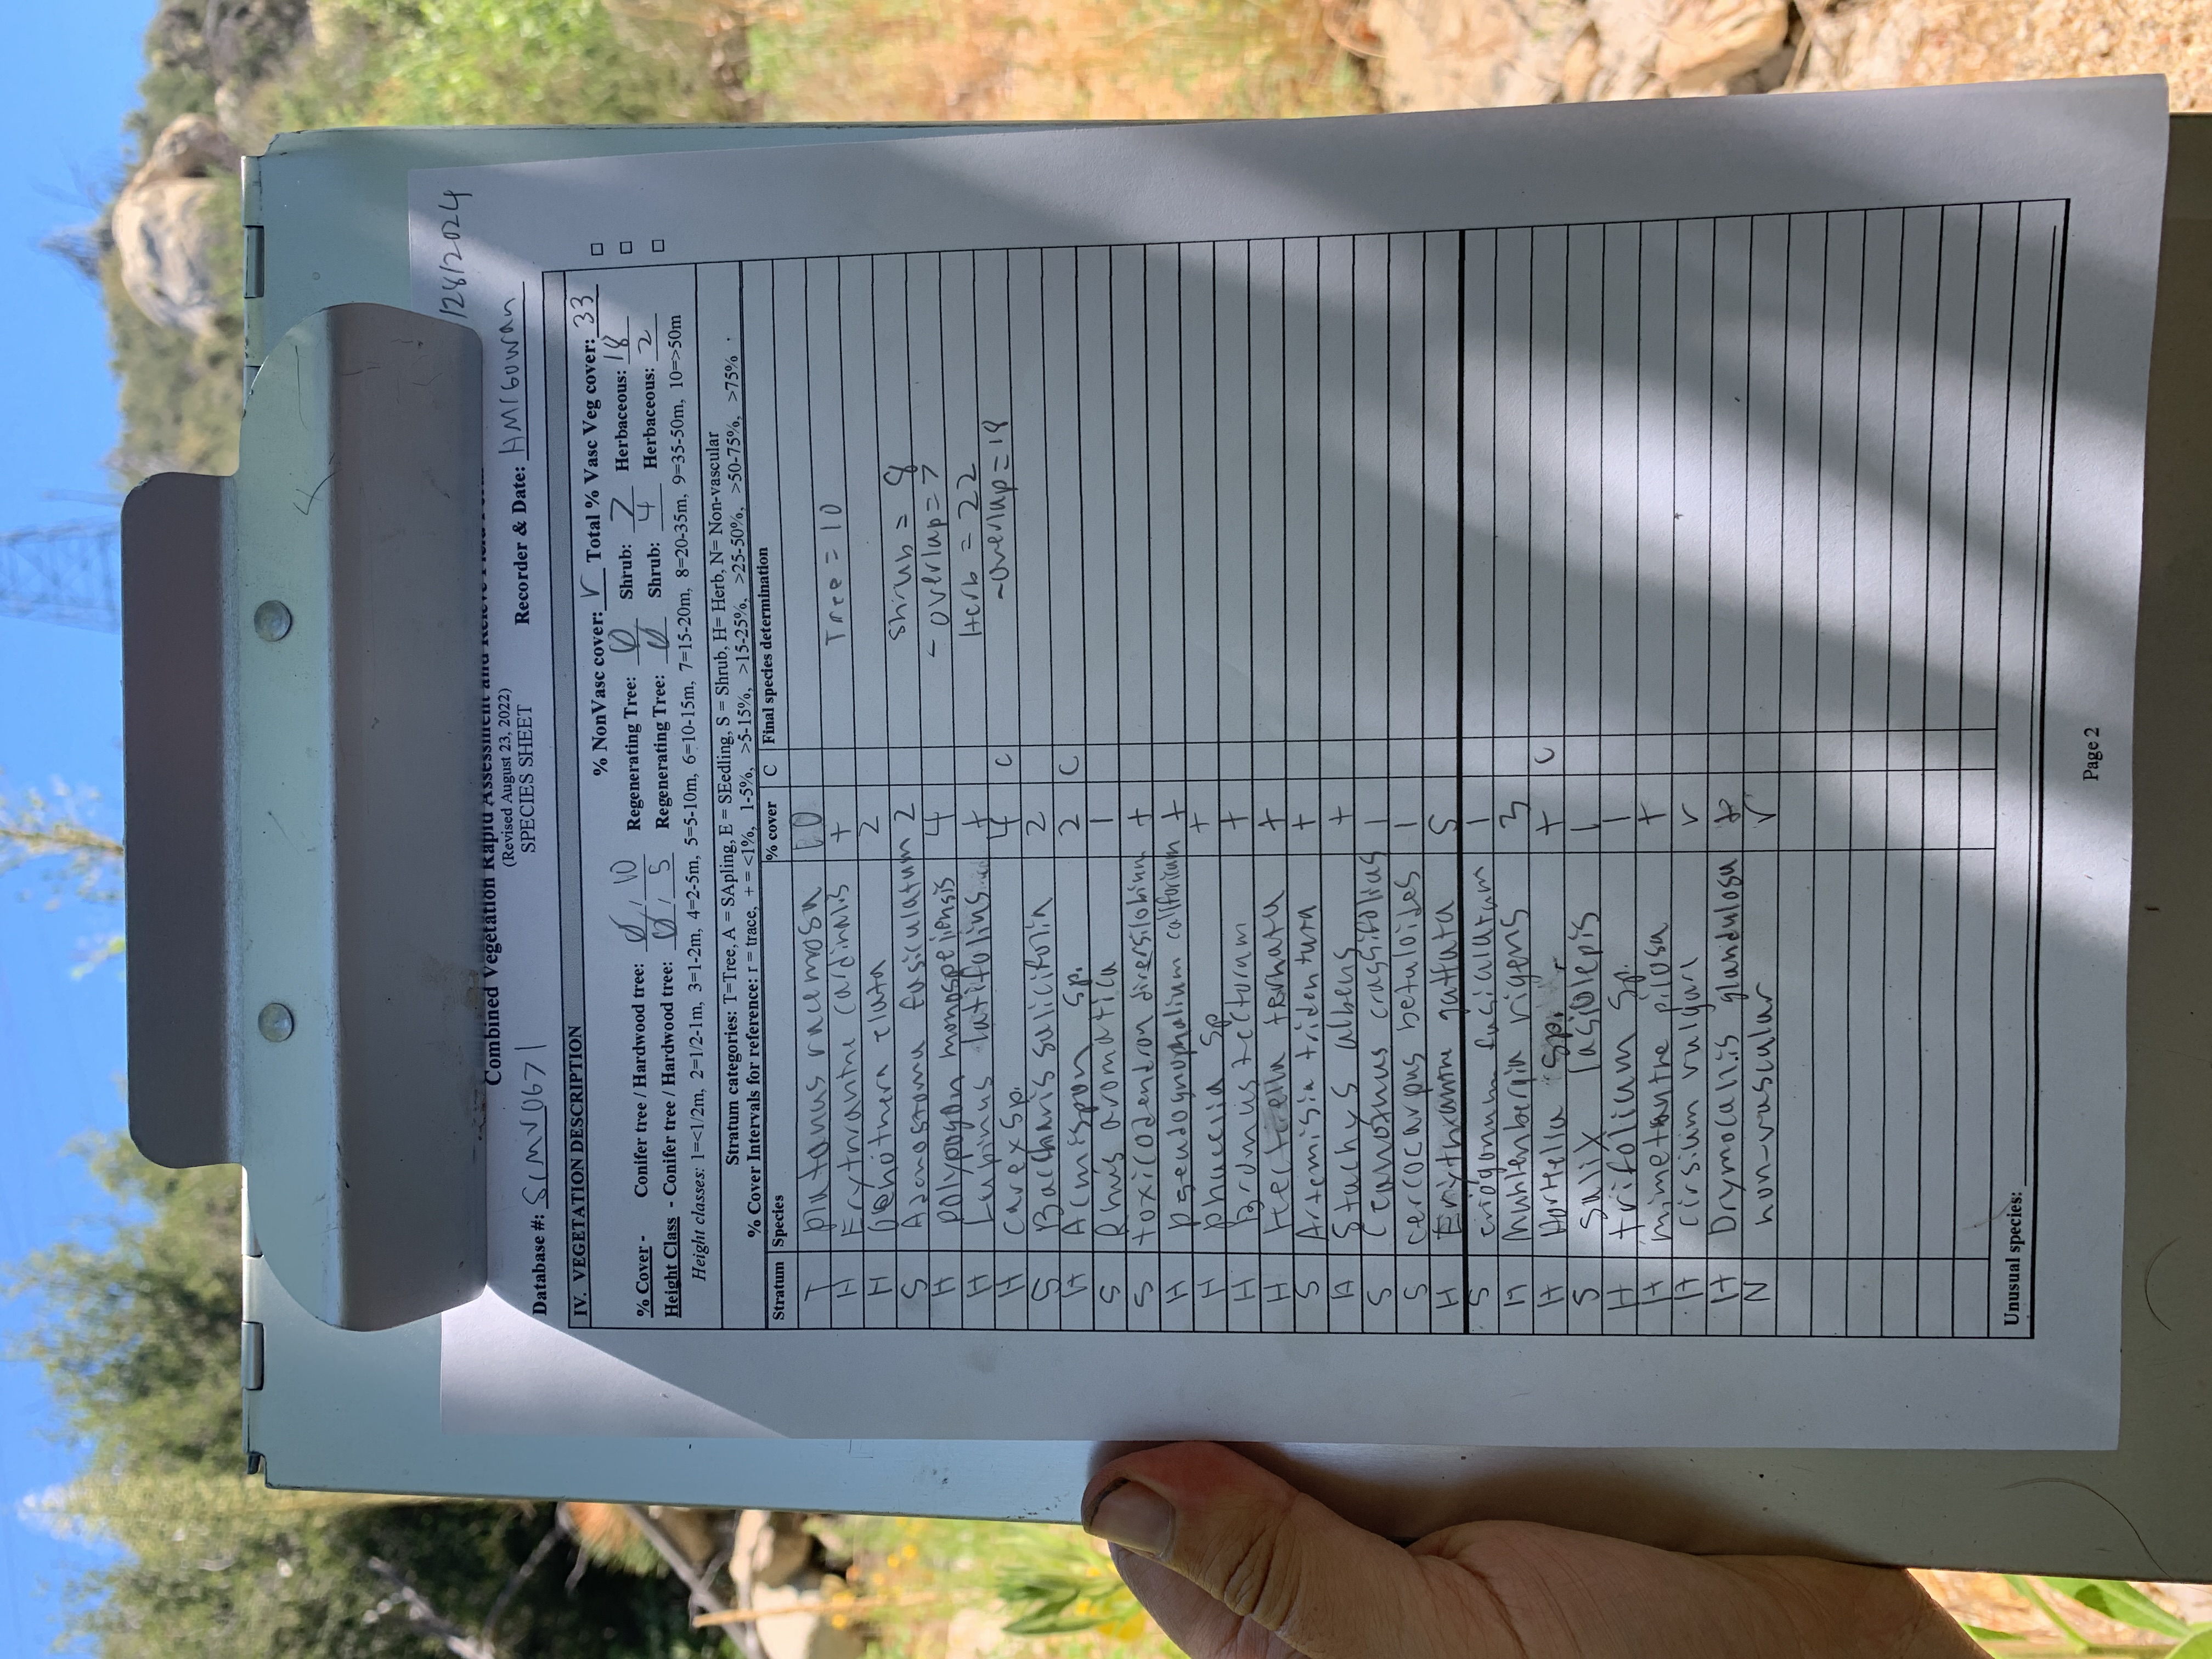 Combined Vegetation Rapid Assessment and
(Revised August 23, 2022)
SPECIES SHEET
128/2024
Database #: SCMV0671 Recorder & Date: HMCGowan
IV. VEGETATION DESCRIPTION
% NonVasc cover: r Total % Vasc Veg cover: 33
% Cover - Conifer tree / Hardwood tree: Ø / 10 Regenerating Tree: Ø Shrub: 7 Herbaceous: 18
Height Class - Conifer tree / Hardwood tree: Ø / 5 Regenerating Tree: Ø Shrub: 4 Herbaceous: 2
Height classes: 1=<1/2m, 2=1/2-1m, 3=1-2m, 4=2-5m, 5=5-10m, 6=10-15m, 7=15-20m, 8=20-35m, 9=35-50m, 10=>50m
Stratum categories: T=Tree, A = SApling, E = SEedling, S = Shrub, H= Herb, N= Non-vascular
% Cover Intervals for reference: r = trace, + = <1%, 1-5%, >5-15%, >15-25%, >25-50%, >50-75%, >75%
Stratum Species % cover C Final species determination
T platanus racemosa 10
H Erythranthe cardinalis + Tree = 10
H Oenothera elata 2
S Adenostoma fasciculatum 2 Shrub = 8
H polypogon monospeliensis 4 - overlap = 7
H Lupinus latifolius + Herb = 22
H Carex sp. 4 C -overlap = 18
S Baccharis salicifolia 2
H Acmispon sp. 2 C
S Rhus aromatica 1
S toxicodendron diversilobum +
H pseudognaphalium californicum +
H phacelia sp +
H Bromus tectorum +
H +
S Artemisia tridentata +
H Stachys albens +
S Ceanothus crassifolius 1
S cercocarpus betuloides 1
H Erythranthe guttata 5
S eriogonum fasciculatum 1
H Muhlenbergia rigens 3
H sp. + C
S Salix lasiolepis 1
H trifolium sp. 1
H mimetanthe pilosa +
H cirsium vulgare r
H Drymocallis glandulosa +
N non-vascular r
Unusual species:
Page 2